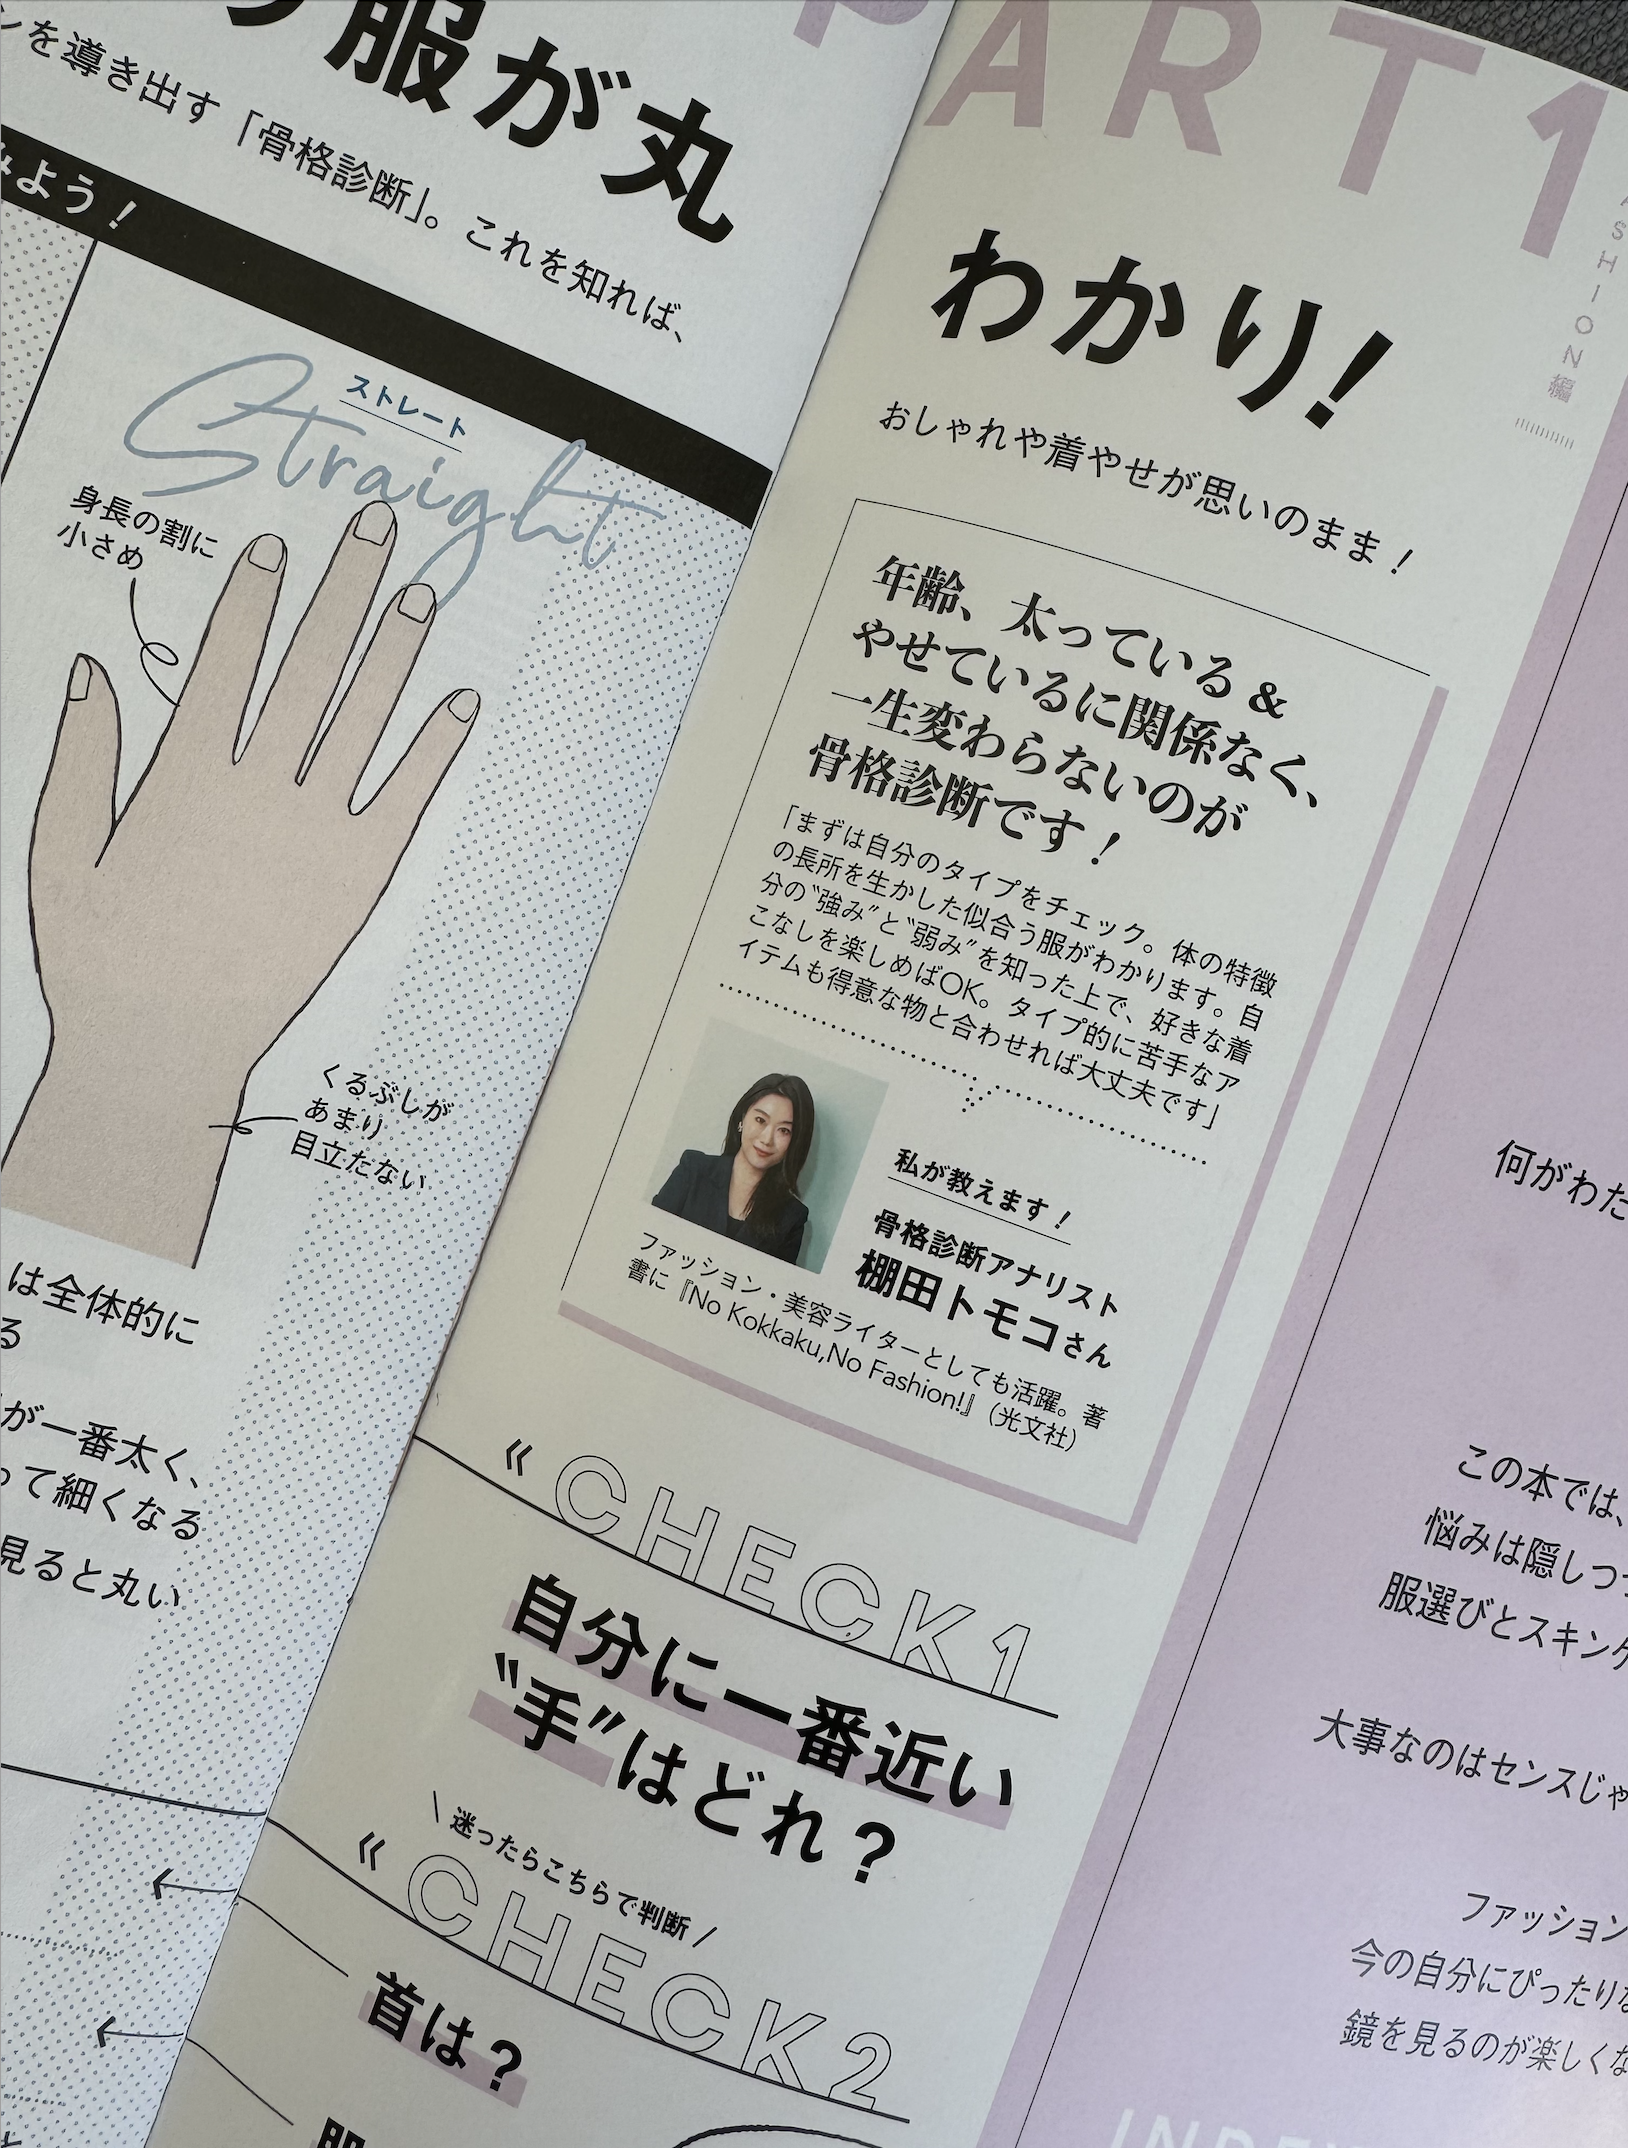 服が丸
を導き出す「骨格診断」。これを知れば、
みよう！
ストレート
Straight
身長の割に
小さめ
くるぶしが
あまり
目立たない
は全体的に
る
が一番太く、
って細くなる
見ると丸い
PART1
FASHION編
わかり！
おしゃれや着やせが思いのまま！
年齢、太っている＆
やせているに関係なく、
一生変わらないのが
骨格診断です！
「まずは自分のタイプをチェック。体の特徴
の長所を生かした似合う服がわかります。自
分の“強み”と“弱み”を知った上で、好きな着
こなしを楽しめばOK。タイプ的に苦手なア
イテムも得意な物と合わせれば大丈夫です」
私が教えます！
骨格診断アナリスト
棚田トモコさん
ファッション・美容ライターとしても活躍。著
書に『No Kokkaku,No Fashion!』（光文社）
« CHECK1
自分に一番近い
“手”はどれ？
\ 迷ったらこちらで判断 /
« CHECK2
首は？
何がわた
この本では、
悩みは隠しつつ
服選びとスキンケ
大事なのはセンスじゃ
ファッション
今の自分にぴったりな
鏡を見るのが楽しくな